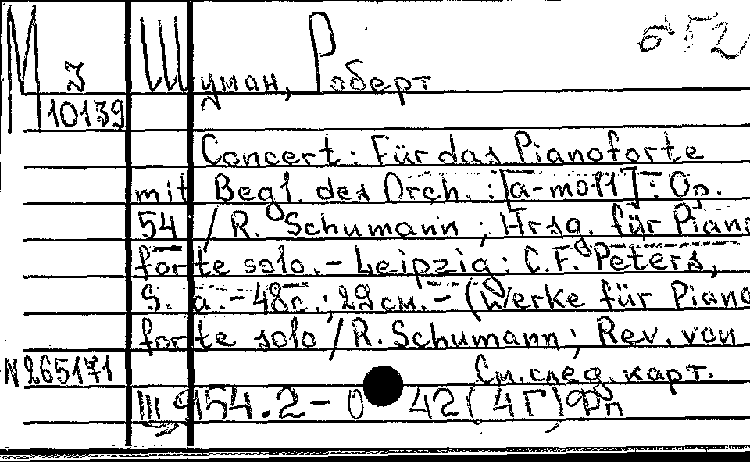 М З Шуман, Роберт
10139
Concert: Für das Pianoforte
mit Begl. des Orch. : [a-moll] : Op.
54 / R. Schumann ; Hrsg. für Piano
forte solo. - Leipzig : C.F. Peters,
S. a. - 48с. ; 29см. - (Werke für Piano
forte solo / R. Schumann ; Rev. von
N265171 См. след. карт.
Щ954.2-0 42(4Г)Фп